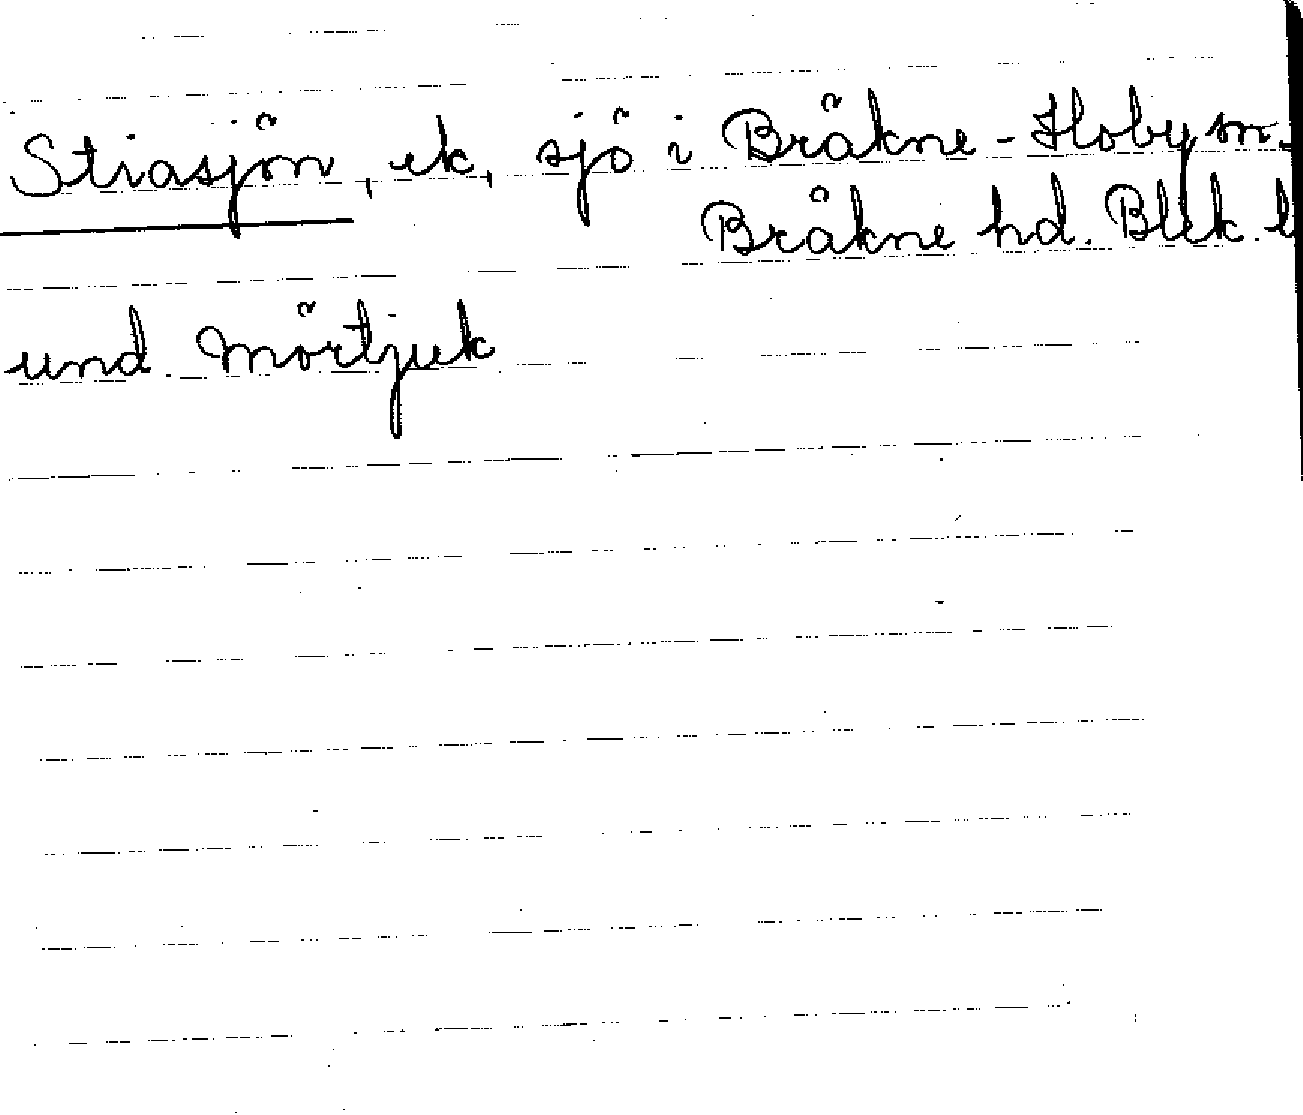 Striasjön, ek, sjö i Bråkne-Hoby sn.
Bråkne hd. Blek. l
und. Mörtjuk